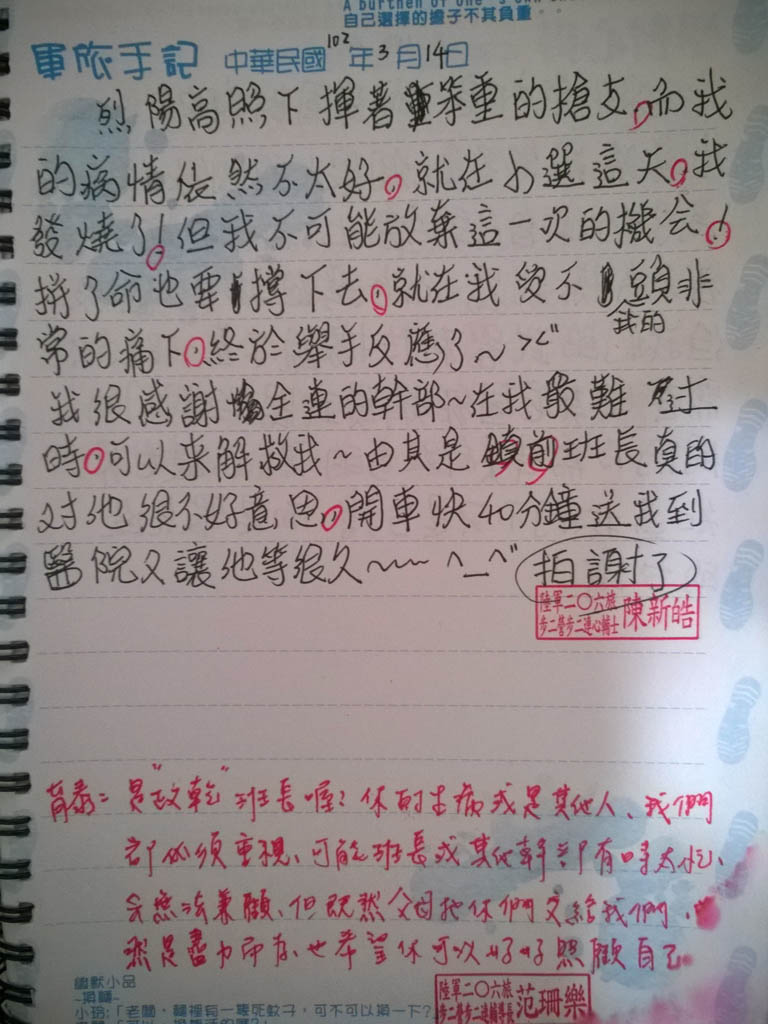 A burthen of one's own
自己選擇的擔子不其負重。
軍旅手記 中華民國102年3月14日
烈陽高照下揮著笨重的搶支,而我
的病情依然不太好,就在小選這天,我
發燒了!但我不可能放棄這一次的機会!
拼了命也要撐下去,就在我受不 我的頭非
常的痛下,終於舉手反應了~ ><"
我很感謝 全連的幹部~在我最難 討
時,可以来解救我~由其是 班長真的
对他很不好意思,開車快40分鐘送我到
醫院又讓他等很久~~~ ^_^" 拍謝了
陸軍二〇六旅
步二營步二連心輔士 陳新皓
育泰:是"政乾"班長喔!你的生病或是其他人、我們
都必須重視、可能班長或其他幹部有時太忙、
会無法兼顧、但既然父母把你們交給我們、
就是盡力而為、也希望你可以好好照顧自己。
陸軍二〇六旅
步二營步二連輔導長 范珊樂
幽默小品
~換麵~
小玲:「老闆,麵裡有一隻死蚊子,可不可以換一下?